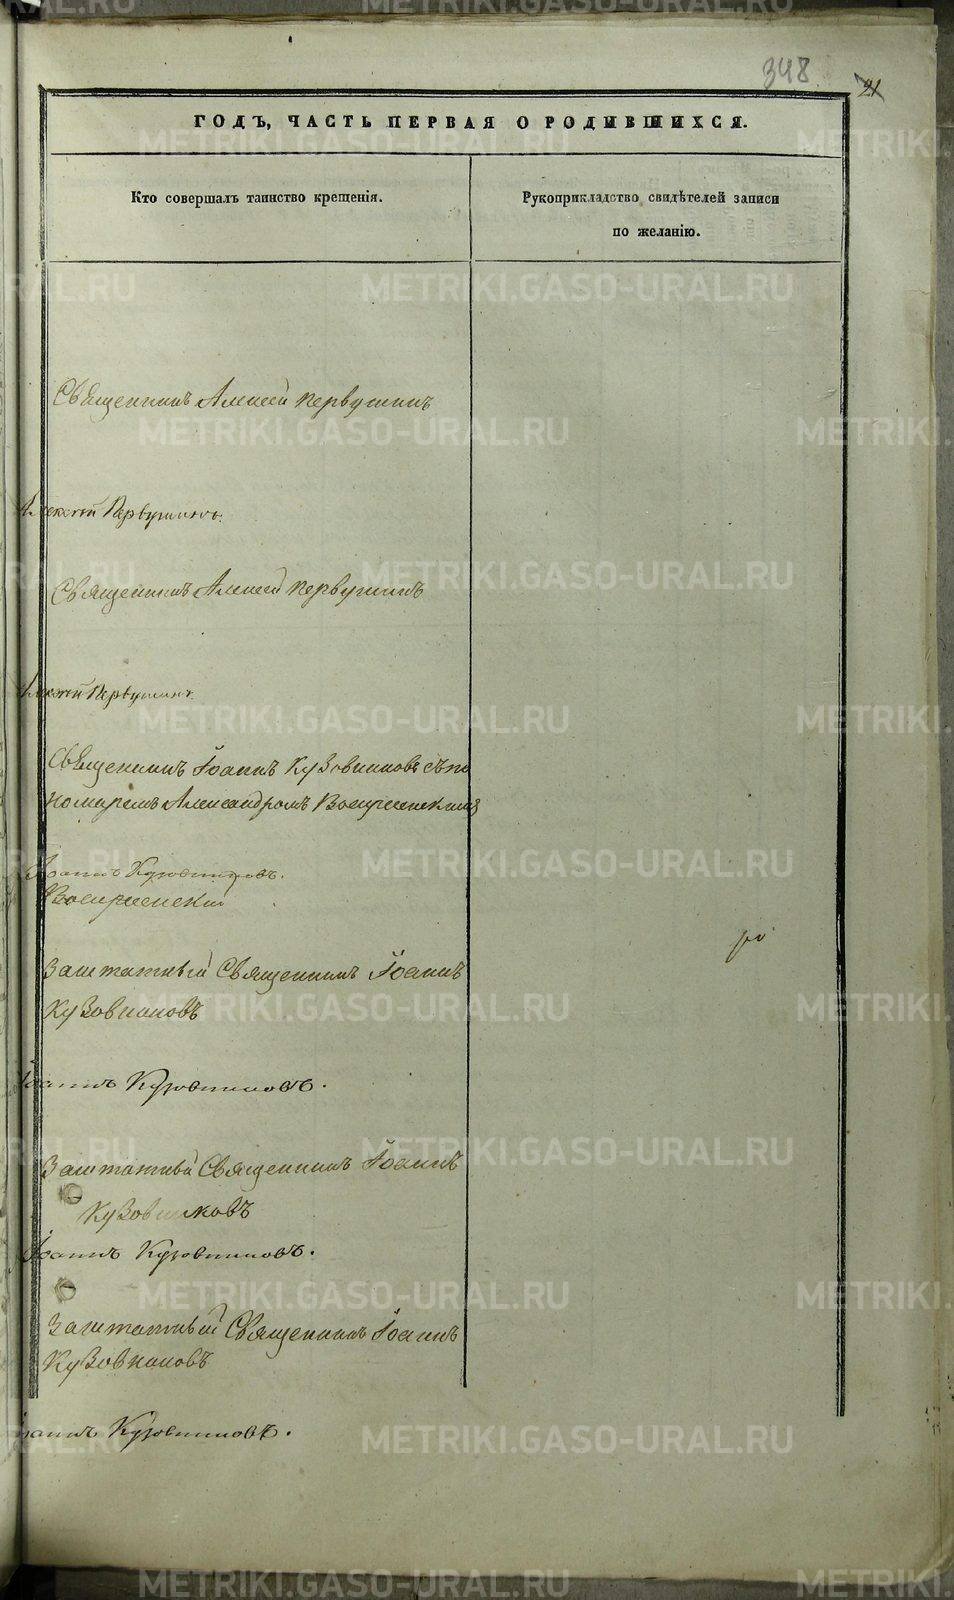 348
21
ГОДЪ, ЧАСТЬ ПЕРВАЯ О РОДИВШИХСЯ.
Кто совершалъ таинство крещенія.
Рукоприкладство свидѣтелей записи
по желанію.
Священникъ Алексей Первушинъ
Алексей Первушинъ.
Священникъ Алексей Первушинъ
Алексей Первушинъ.
Священникъ Іоаннъ Кузовниковъ съ по
номаремъ Александромъ Воскресенскимъ
Іоаннъ Кузовниковъ.
Воскресенский
Заштатный Священникъ Іоаннъ
Кузовниковъ
Іоаннъ Кузовниковъ.
Заштатный Священникъ Іоаннъ
Кузовниковъ
Іоаннъ Кузовниковъ.
Заштатный Священникъ Іоаннъ
Кузовниковъ
Іоаннъ Кузовниковъ.
METRIKI.GASO-URAL.RU